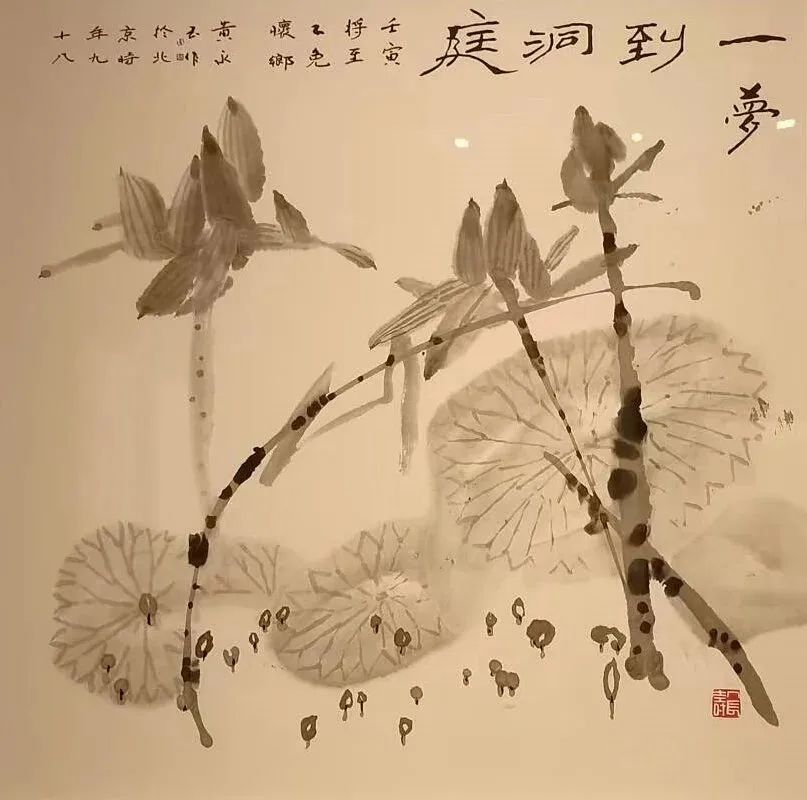 一夢
到
洞
庭
壬寅
将至
不免
懷鄉
黄永
玉作
於北
京時
年九
十八